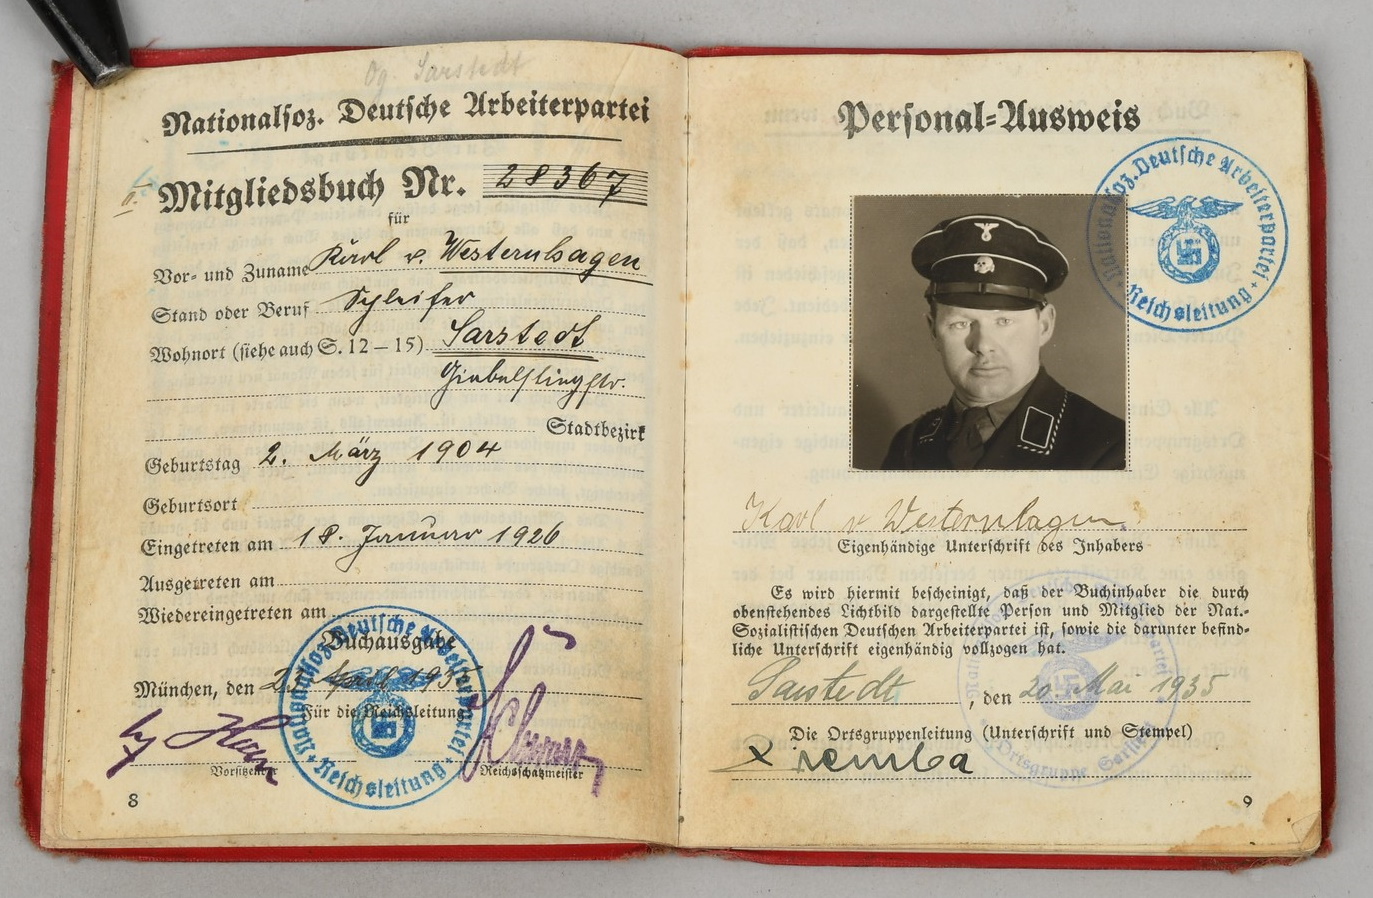 Og. Sarstedt
Nationalsoz. Deutsche Arbeiterpartei
Mitgliedsbuch Nr. 28367
für
Vor- und Zuname Karl v. Westernhagen
Stand oder Beruf Schleifer
Wohnort (siehe auch S. 12 – 15) Sarstedt
Giebelstiegstr.
Stadtbezirk
Geburtstag 2. März 1904
Geburtsort
Eingetreten am 18. Januar 1926
Ausgetreten am
Wiedereingetreten am
Buchausgabe
München, den April 193
Für die Reichsleitung
Vorsitzender
Reichsschatzmeister
Nationalsoz. Deutsche Arbeiterpartei
Reichsleitung
8
Personal-Ausweis
Nationalsoz. Deutsche Arbeiterpartei
Reichsleitung
Karl v Westernhagen
Eigenhändige Unterschrift des Inhabers
Es wird hiermit bescheinigt, daß der Buchinhaber die durch
obenstehendes Lichtbild dargestellte Person und Mitglied der Nat.-
Sozialistischen Deutschen Arbeiterpartei ist, sowie die darunter befind-
liche Unterschrift eigenhändig vollzogen hat.
Sarstedt, den 20. Mai 1935
Die Ortsgruppenleitung (Unterschrift und Stempel)
Ortsgruppe Sarstedt
9